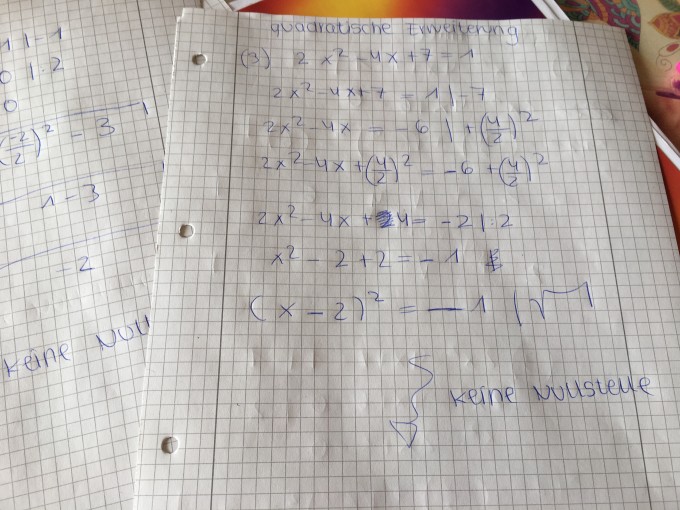 1 | -1
0 | : 2
0
(-2/2)² - 3
1 - 3
-2
keine Null
quadratische Erweiterung
(3) 2x² - 4x + 7 = 1
2x² - 4x + 7 = 1 | -7
2x² - 4x = -6 | + (4/2)²
2x² - 4x + (4/2)² = -6 + (4/2)²
2x² - 4x + 4 = -2 | : 2
x² - 2 + 2 = -1
(x - 2)² = -1 | √
keine Nullstelle